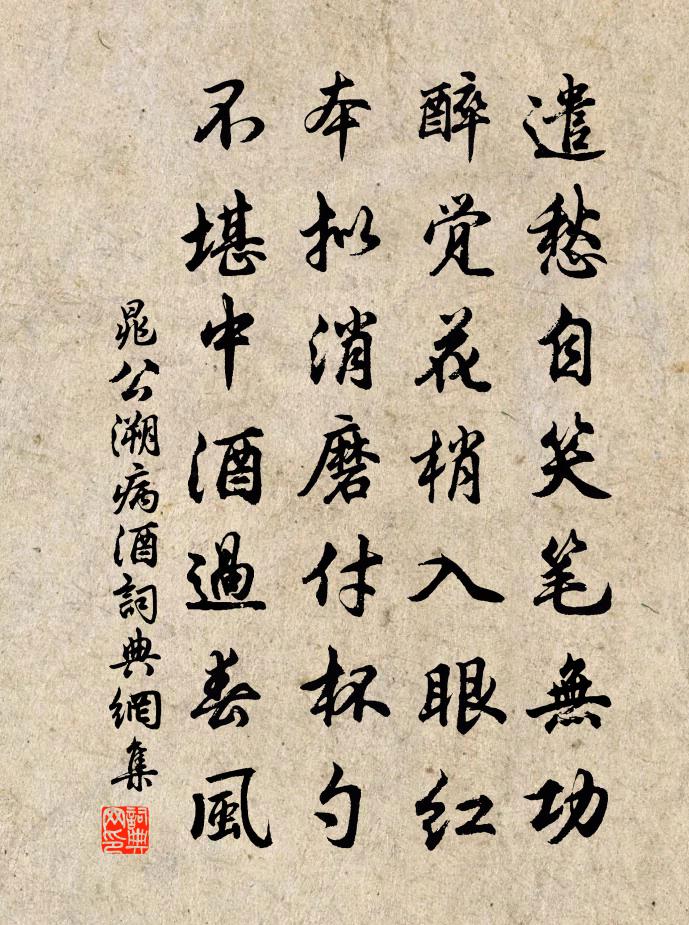 遣愁自笑笔無功
醉觉花梢入眼红
本拟消磨付杯勺
不堪中酒過春風
晁公溯病酒詞典網集
詞典网印